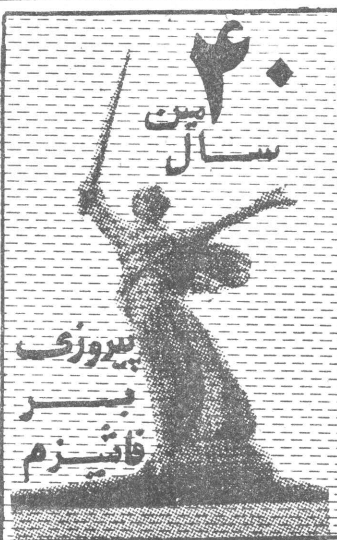 ۴۰
مین
سال
پیروزی
بر
فاشیزم